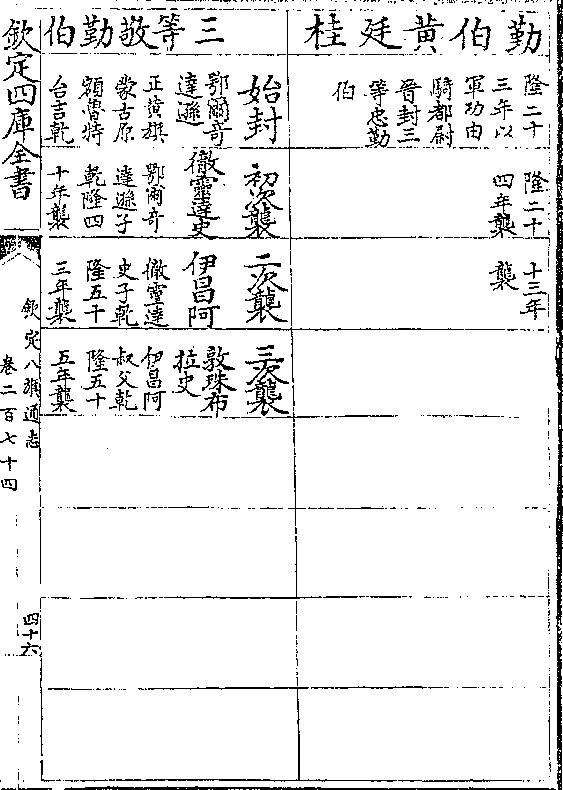 勤伯黃廷桂
隆二十
三年以
軍功由
騎都尉
晉封三
等忠勤
伯
隆二十
四年襲
十三年
襲
三等敬勤伯
始封
鄂爾奇
達遜
正黃旗
蒙古原
額魯特
台吉乾
初次襲
徹靈達史
鄂爾奇
達遜子
乾隆四
十年襲
二次襲
伊昌阿
徹靈達
史子乾
隆五十
三年襲
三次襲
敦珠布
拉史
伊昌阿
叔父乾
隆五十
五年襲
欽定四庫全書
欽定八旗通志
卷二百七十四
四十六